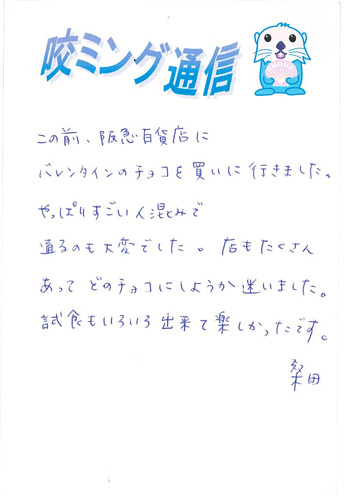 咬ミング通信
この前、阪急百貨店に
バレンタインのチョコを買いに行きました。
やっぱりすごい人混みで
通るのも大変でした。店もたくさん
あってどのチョコにしようか迷いました。
試食もいろいろ出来て楽しかったです。
桑田